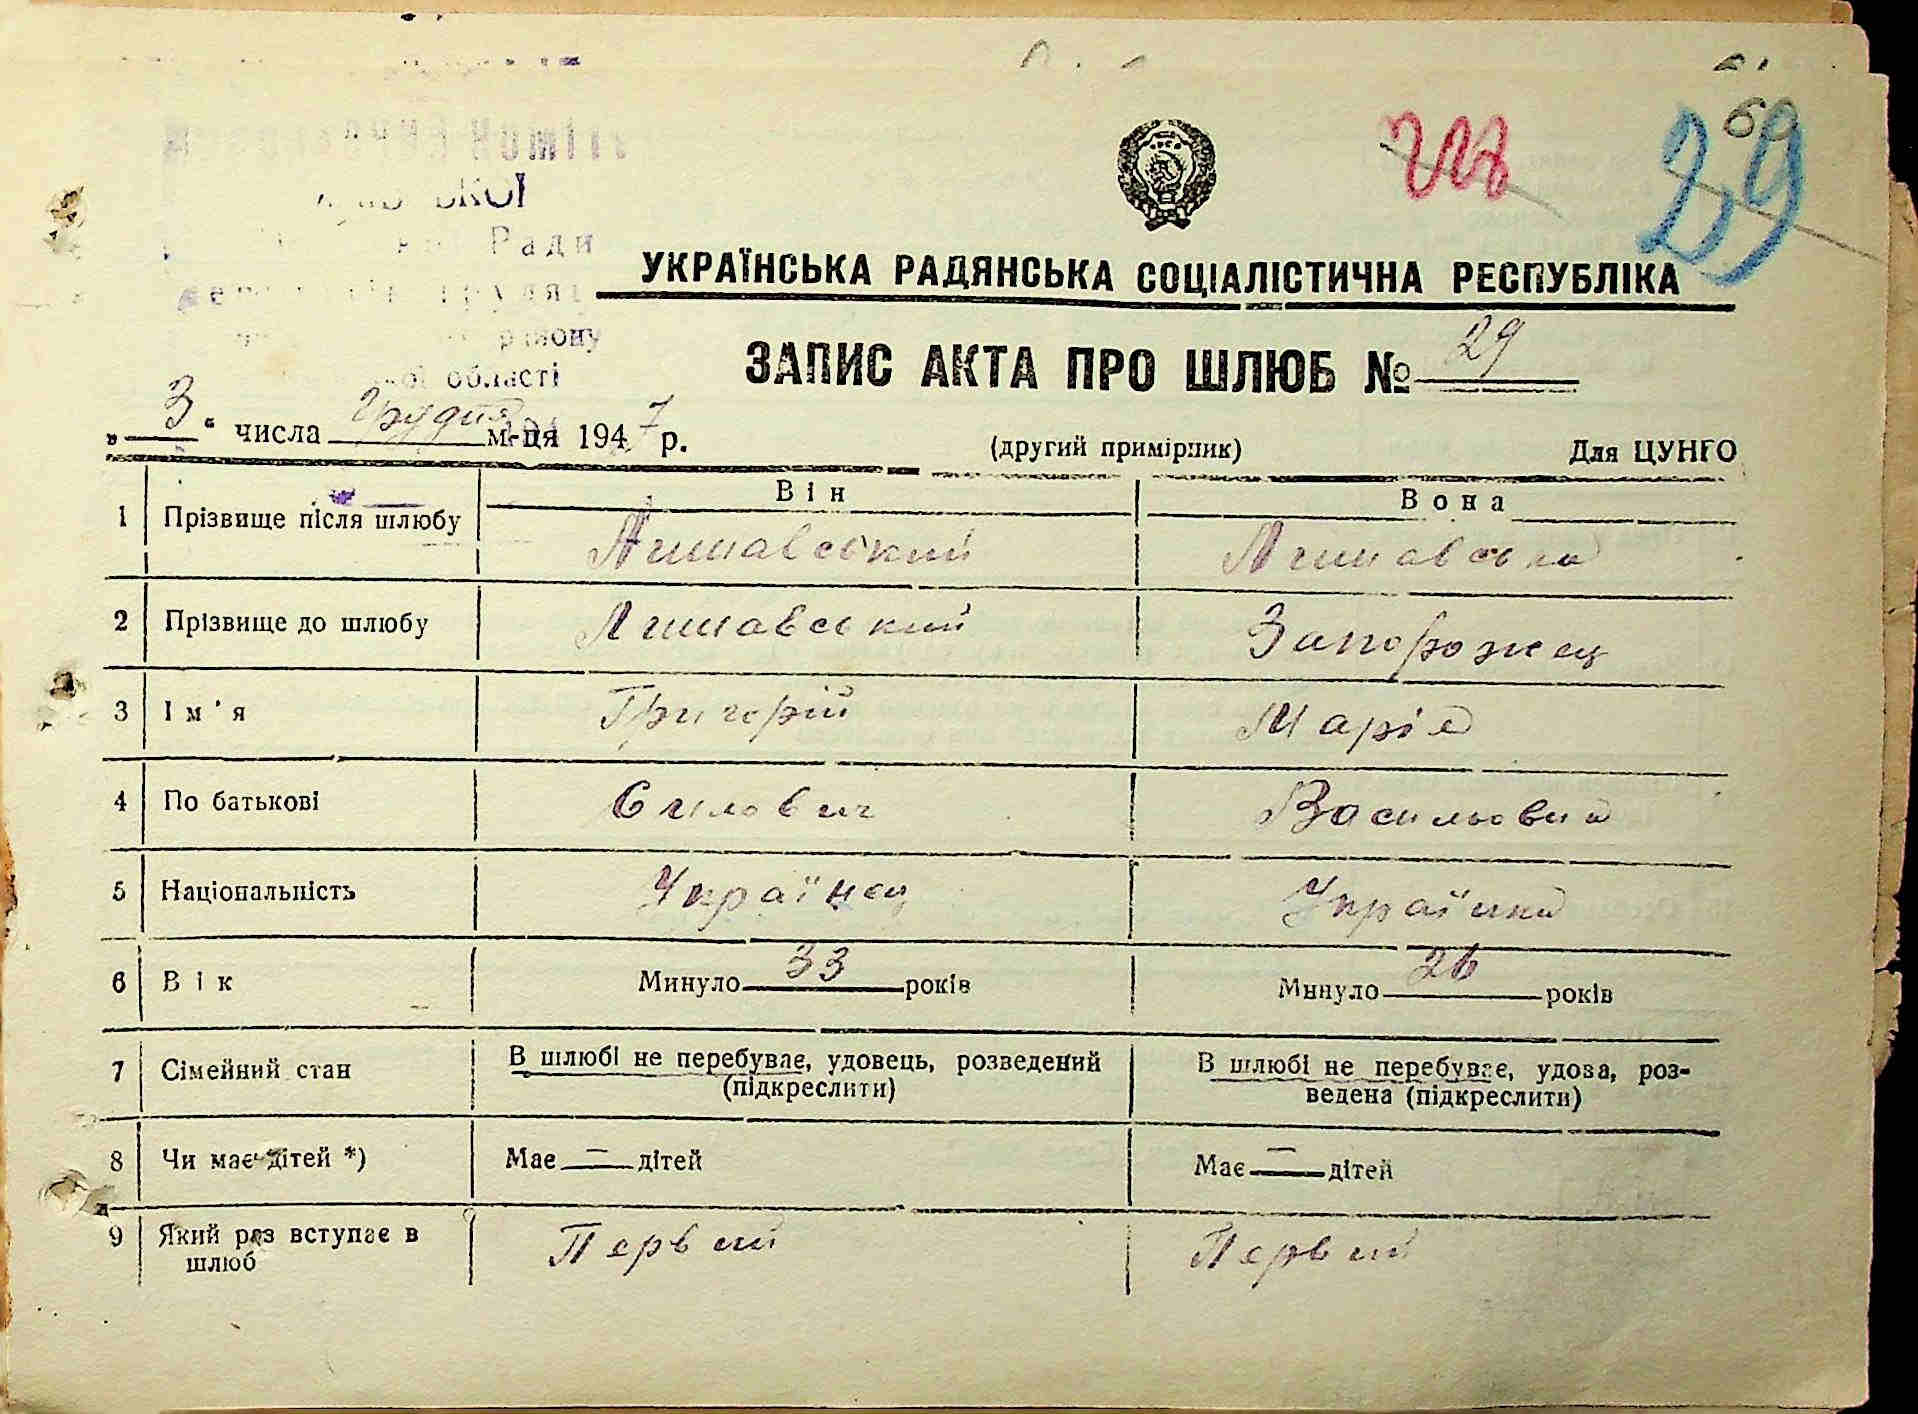 60
29
УКРАЇНСЬКА РАДЯНСЬКА СОЦІАЛІСТИЧНА РЕСПУБЛІКА
Ради
району
області
ЗАПИС АКТА ПРО ШЛЮБ № 29
„3“ числа Грудня м-ця 1947 р.
(другий примірник) Для ЦУНГО
Він Вона
1 Прізвище після шлюбу
2 Прізвище до шлюбу Запорожец
3 Ім'я Григорій Марія
4 По батькові Силович Васильовна
5 Національність Українец Українка
6 Вік Минуло 33 років Минуло 26 років
7 Сімейний стан В шлюбі не перебуває, удовець, розведений (підкреслити) В шлюбі не перебуває, удова, розведена (підкреслити)
8 Чи має дітей *) Має — дітей Має — дітей
9 Який раз вступає в шлюб Первий Первий